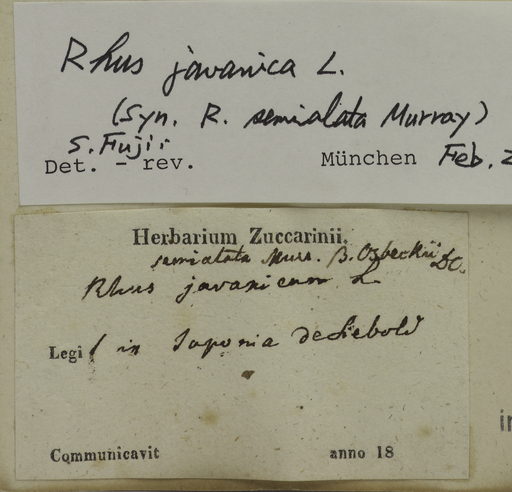 Rhus javanica L.
(Syn. R. semialata Murray)
S. Fujii
Det. - rev. München Feb. 2
Herbarium Zuccarinii.
semialata Murr. B. Osbeckii DC.
Rhus javanicum L
Legi in Japonia de Siebold
Communicavit anno 18